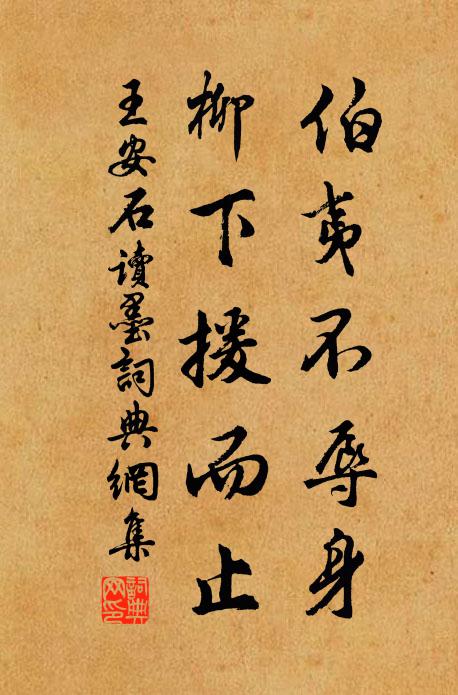 伯夷不辱身
柳下援而止
王安石讀墨詞典網集
詞典
网印